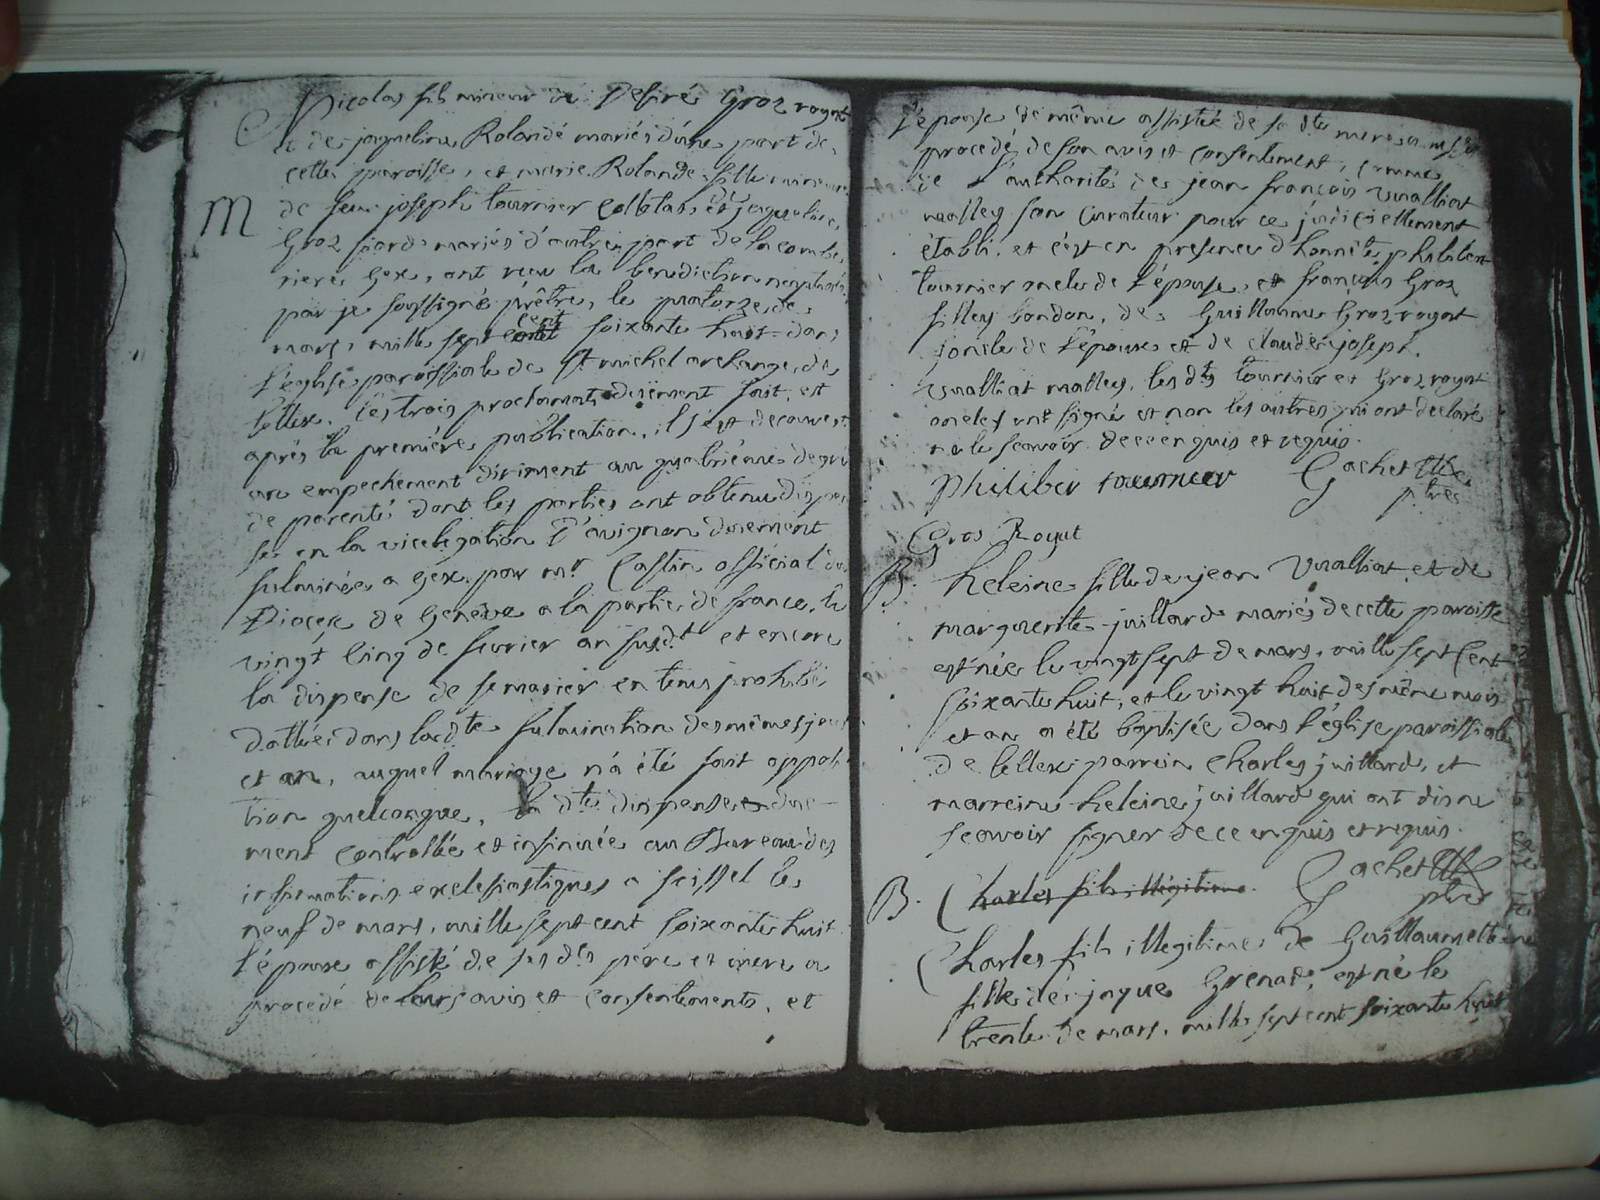 Nicolas fils mineur de Desiré Groz royat
et de jaqueline Rolandé mariés d'une part de
cette paroisse, et marie Rolande fille mineure
M
de feu joseph tournier Colletas et jaqueline
Groz mariés d'autre part de la combe
Gex, ont reçu la benediction nuptiale
par je soussigné prêtre, le quatorze de
mars, mille sept cent soixante huit dans
l'eglise paroissiale de St michel archange de
lellex. les trois proclamats düement fait, est
après la première publication, il s'est decouvert
un empechement dirimant au quatriéme degré
de parenté dont les parties ont obtenu dispen
se en la vicelegation d'avignon düement
fulminée a Gex par mr Castin official du
Diocese de Genève a la partie de france, le
vingt cinq de fevrier an susdt et encore
la dispense de se marier en tems prohibé
dattée dans ladte fulmination des mêmes jour
et an, auquel mariage n'a été fait opposi
tion quelconque, la dte dispense düe
ment controllée et insinuée au Bureau des
insinuations exclesiastiques a seissel le
neuf de mars, mille sept cent soixante huit
l'épouse assisté de ses dts pere et mere a
procedé de leurs avis et consentements, et
l'épouse de même assistée de sa dte mere
procedé de son avis et consentement, comme
de l'authorité de jean françois vuailliat
malley son curateur pour ce judiciellement
établi, et c'est en presence d'honnête philibert
tournier oncle de l'épouse, et françois Groz
filley bondon, de Guillaume Groz royat
oncle de l'épouse et de claude joseph
vuailliat malley, les dts tournier et Groz royat
oncles ont signé et non les autres qui ont declaré
ne le scavoir de ce enquis et requis.
philiber tournier Gachet
ptre
Gros Royat
B. heleine fille de jean Vuailliat et de
marguerite juillard mariés de cette paroisse
est née le vingt sept de mars, mille sept Cent
soixante huit, et le vingt huit des même mois
et an a été baptisée dans l'église paroissiale
de lellex: parrein Charles juillard, et
marreine heleine juillard qui ont dis ne
scavoir signer de ce enquis et requis.
Gachet
ptre
B. Charles fils illégitime.
Charles fils illegitime de Guillaumette
fille de jaque Grenad, est né le
trente de mars, mille sept cent soixante huit